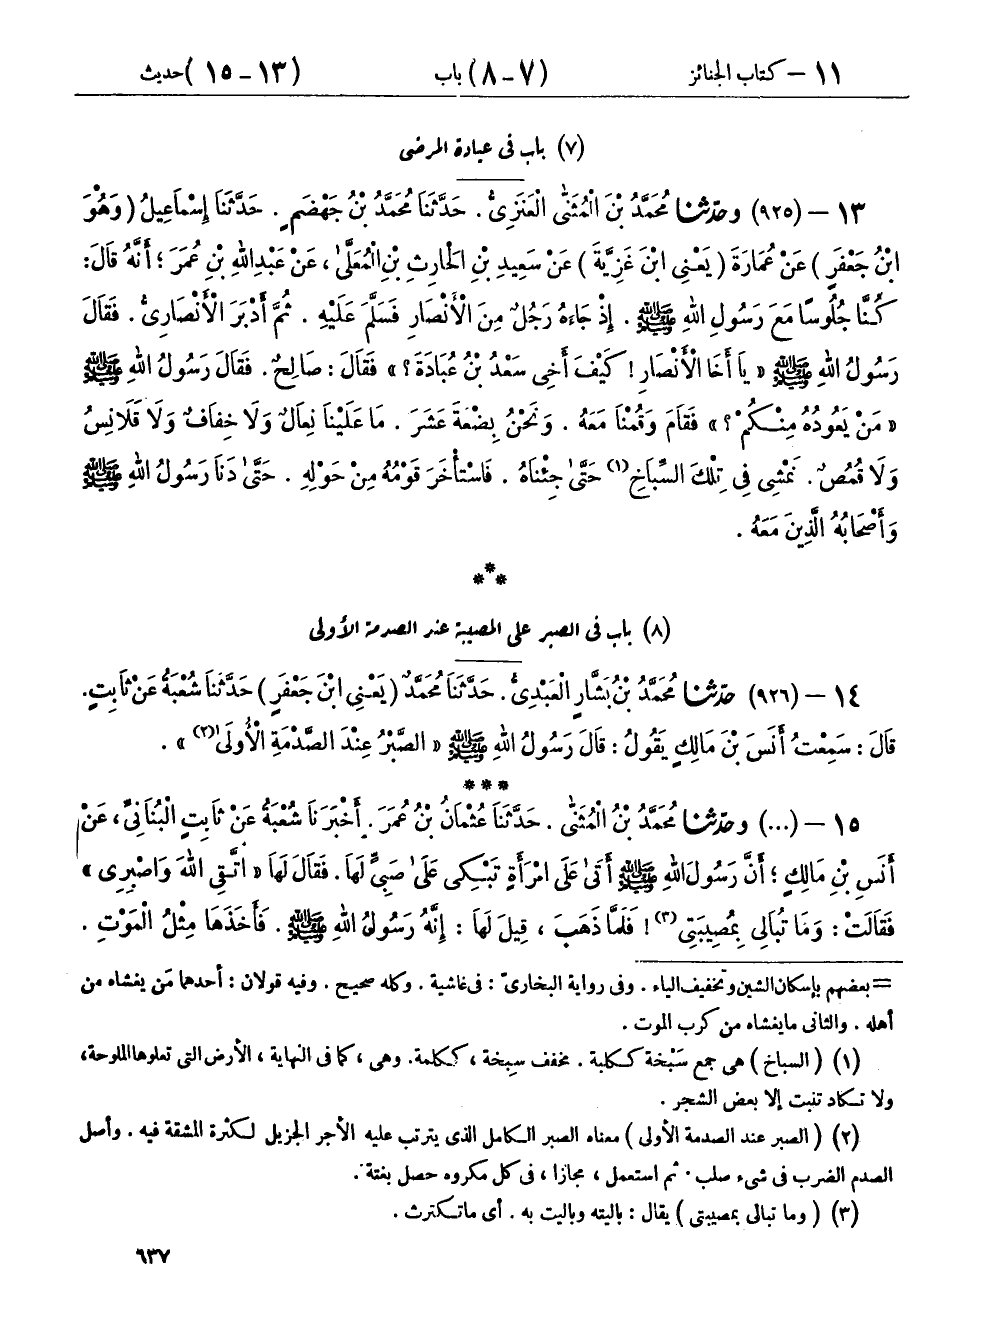 ١١ – كتاب الجنائز (٧ – ٨) باب (١٣ – ١٥) حديث
(٧) باب فى عيادة المرضى
١٣ – (٩٢٥) وحدّثنا مُحَمَّدُ بْنَ الْمُثَنَّى الْعَنَزِىُّ. حَدَّثَنَا مُحَمَّدُ بْنُ جَهْضَمٍ. حَدَّثَنَا إِسْمَاعِيلُ (وَهُوَ
ابْنُ جَعْفَرٍ) عَنْ عُمَارَةَ (يَعْنِى ابْنَ غَزِيَّةَ) عَنْ سَعِيدِ بْنِ الْحَارِثِ بْنِ الْمُعَلَّىٰ، عَنْ عَبْدِ اللهِ بْنِ عُمَرَ؛ أَنَّهُ قَالَ:
كُنَّا جُلُوسًا مَعَ رَسُولِ اللهِ ﷺ. إِذْ جَاءَهُ رَجُلٌ مِنَ الْأَنْصَارِ فَسَلَّمَ عَلَيْهِ. ثُمَّ أَدْبَرَ الْأَنْصَارِىُّ. فَقَالَ
رَسُولُ اللهِ ﷺ « يَا أَخَا الْأَنْصَارِ! كَيْفَ أَخِى سَعْدُ بْنُ عُبَادَةَ؟» فَقَالَ: صَالِحٌ. فَقَالَ رَسُولُ اللهِ ﷺ
« مَنْ يَعُودُهُ مِنْكُمْ؟» فَقَامَ وَقُمْنَا مَعَهُ. وَنَحْنُ بِضْعَةَ عَشَرَ. مَا عَلَيْنَا نِعَالٌ وَلَا خِفَافٌ وَلَا قَلَانِسُ
وَلَا قُمُصٌ. نَمْشِى فِى تِلْكَ السِّبَاخِ(١) حَتَّىٰ جِئْنَاهُ. فَاسْتَأْخَرَ قَوْمُهُ مِنْ حَوْلِهِ. حَتَّىٰ دَنَا رَسُولُ اللهِ ﷺ
وَأَصْحَابُهُ الَّذِينَ مَعَهُ.
***
(٨) باب فى الصبر على المصيبة عند الصدمة الأولى
١٤ – (٩٢٦) حدّثنا مُحَمَّدُ بْنُ بَشَّارٍ الْعَبْدِىُّ. حَدَّثَنَا مُحَمَّدٌ (يَعْنِى ابْنَ جَعْفَرٍ) حَدَّثَنَا شُعْبَةُ عَنْ ثَابِتٍ.
قَالَ: سَمِعْتُ أَنَسَ بْنَ مَالِكٍ يَقُولُ: قَالَ رَسُولُ اللهِ ﷺ « الصَّبْرُ عِنْدَ الصَّدْمَةِ الْأُولَىٰ(٢)».
***
١٥ – (...) وحدّثنا مُحَمَّدُ بْنُ الْمُثَنَّىٰ. حَدَّثَنَا عُثْمَانُ بْنُ عُمَرَ. أَخْبَرَنَا شُعْبَةُ عَنْ ثَابِتٍ الْبُنَانِىِّ، عَنْ
أَنَسِ بْنِ مَالِكٍ؛ أَنَّ رَسُولَ اللهِ ﷺ أَتَىٰ عَلَى امْرَأَةٍ تَبْكِى عَلَىٰ صَبِىٍّ لَهَا. فَقَالَ لَهَا « اتَّقِى اللهَ وَاصْبِرِى»
فَقَالَتْ: وَمَا تُبَالِى بِمُصِيبَتِى(٣)! فَلَمَّا ذَهَبَ، قِيلَ لَهَا: إِنَّهُ رَسُولُ اللهِ ﷺ. فَأَخَذَهَا مِثْلُ الْمَوْتِ.
= بعضهم بإسكان الشين وتخفيف الياء. وفى رواية البخارىّ: فى غاشية. وكله صحيح. وفيه قولان: أحدهما مَن يغشاه من
أهله. والثانى ما يغشاه من كرب الموت.
(١) (السباخ) هى جمع سَبْخة ككلبة. مخفف سبِخة، ككلمة. وهى، كما فى النهاية، الأرض التى تعلوها الملوحة،
ولا تكاد تنبت إلا بعض الشجر.
(٢) (الصبر عند الصدمة الأولى) معناه الصبر الكامل الذى يترتب عليه الأجر الجزيل لكثرة المشقة فيه. وأصل
الصدم الضرب فى شىء صلب. ثم استعمل، مجازا، فى كل مكروه حصل بغتة.
(٣) (وما تبالى بمصيبتى) يقال: باليته وباليت به. أى ما تكترث.
٦٣٧